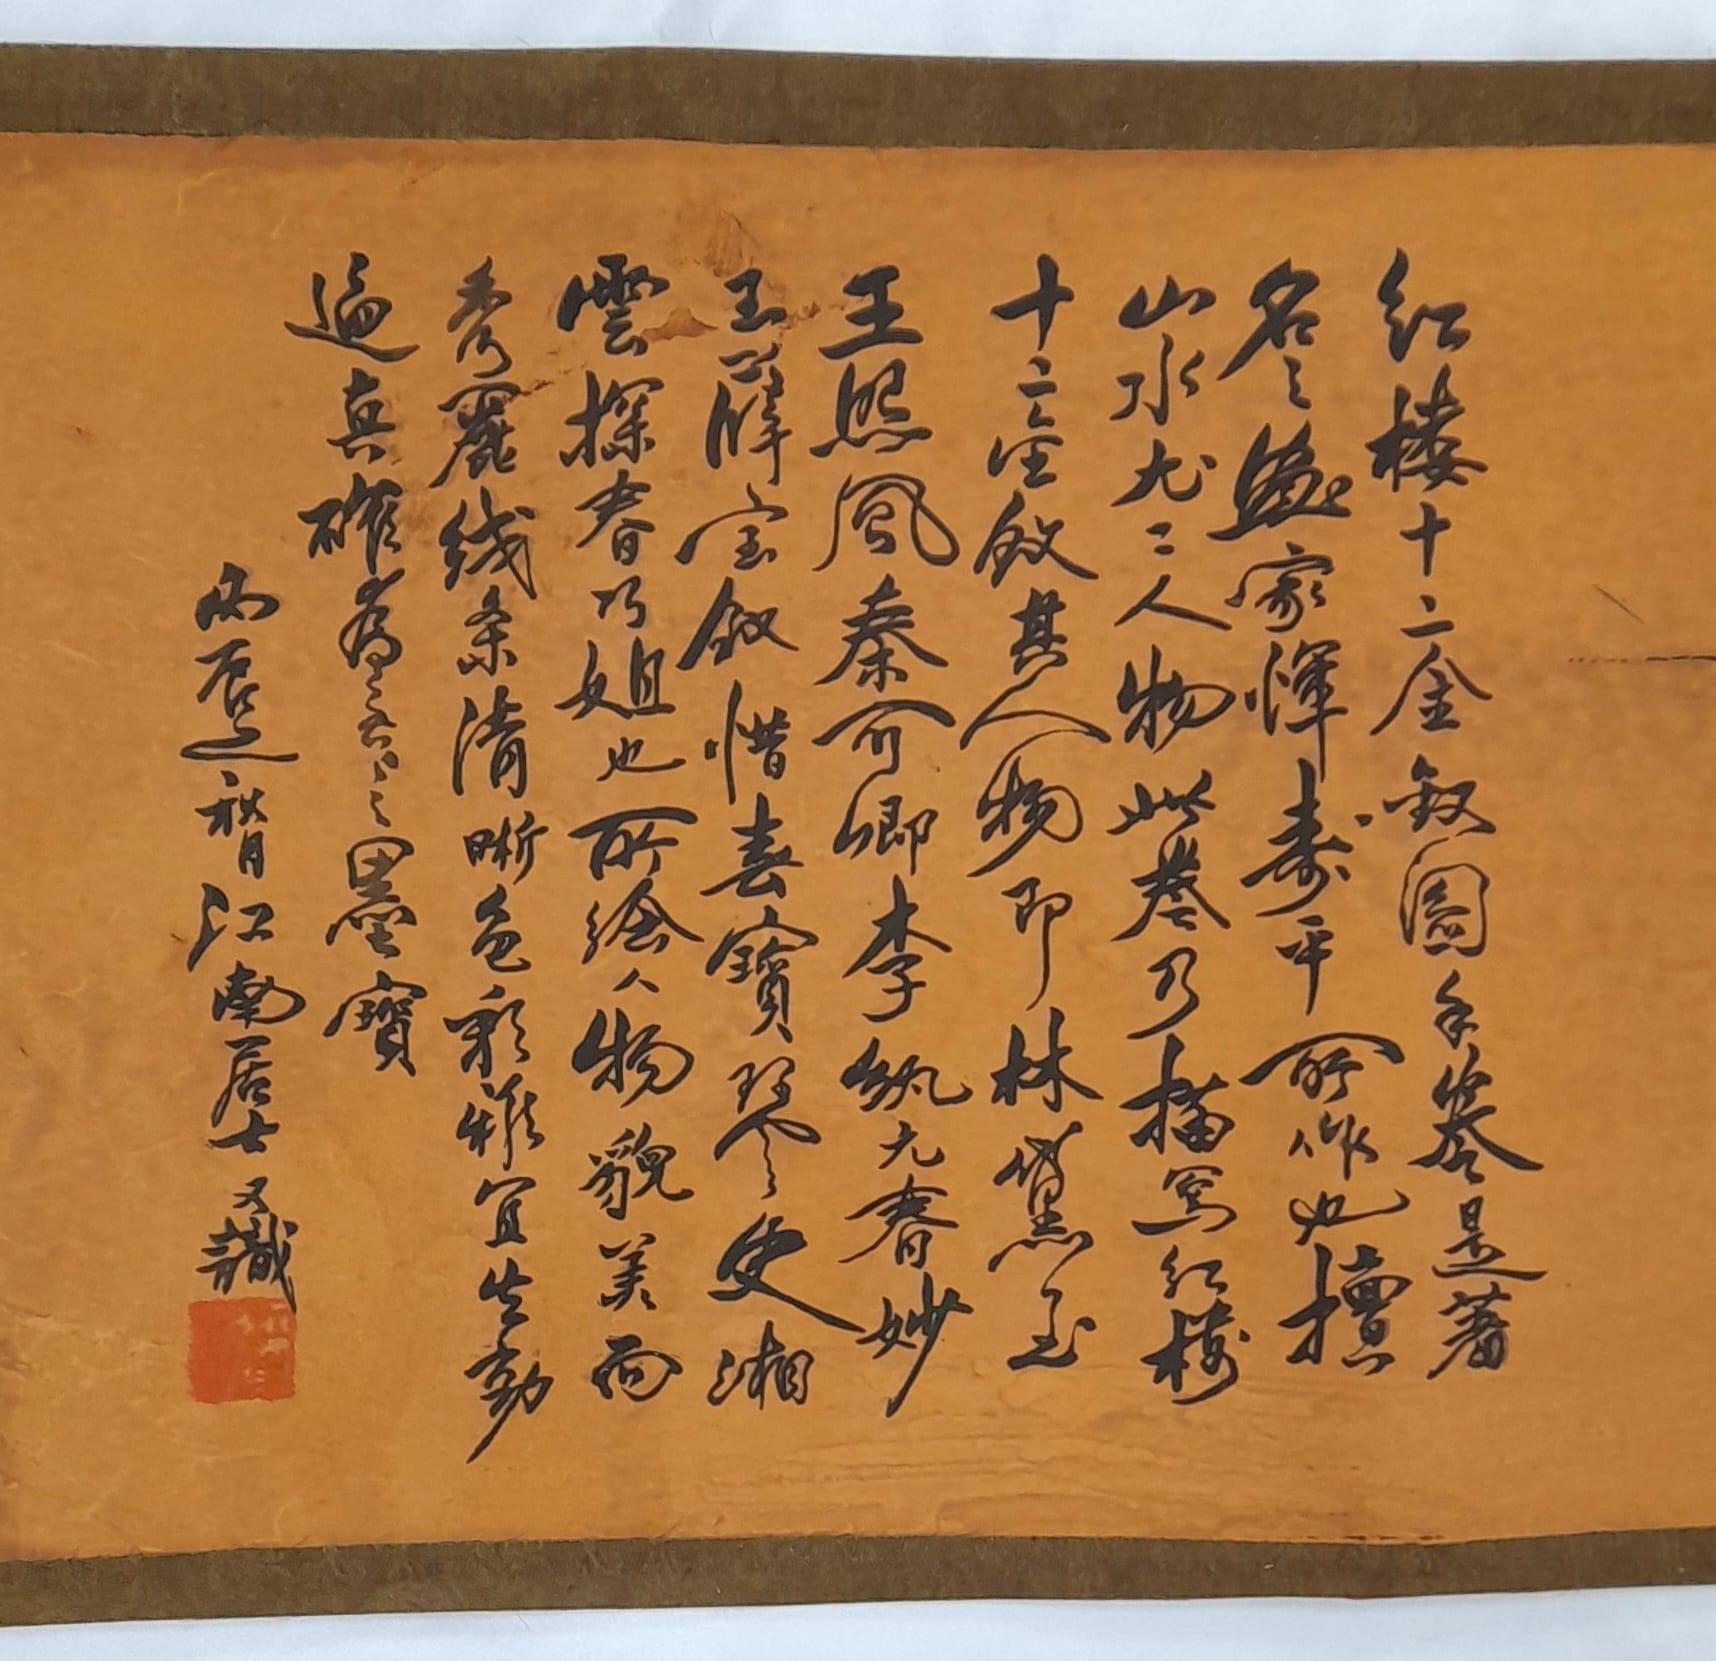 红楼十二金釵圖手卷是著
名之畫家惲寿平所作也擅
山水尤工人物此卷乃描寫红楼
十二金釵其人物即林黛玉
王熙鳳秦可卿李紈元春妙
玉薛宝釵惜春寶琴史湘
雲探春巧姐也所繪人物貌美而
秀麗线条清晰色彩雅宜生動
逼真確為之墨寶
丙辰之秋月江南居士又識